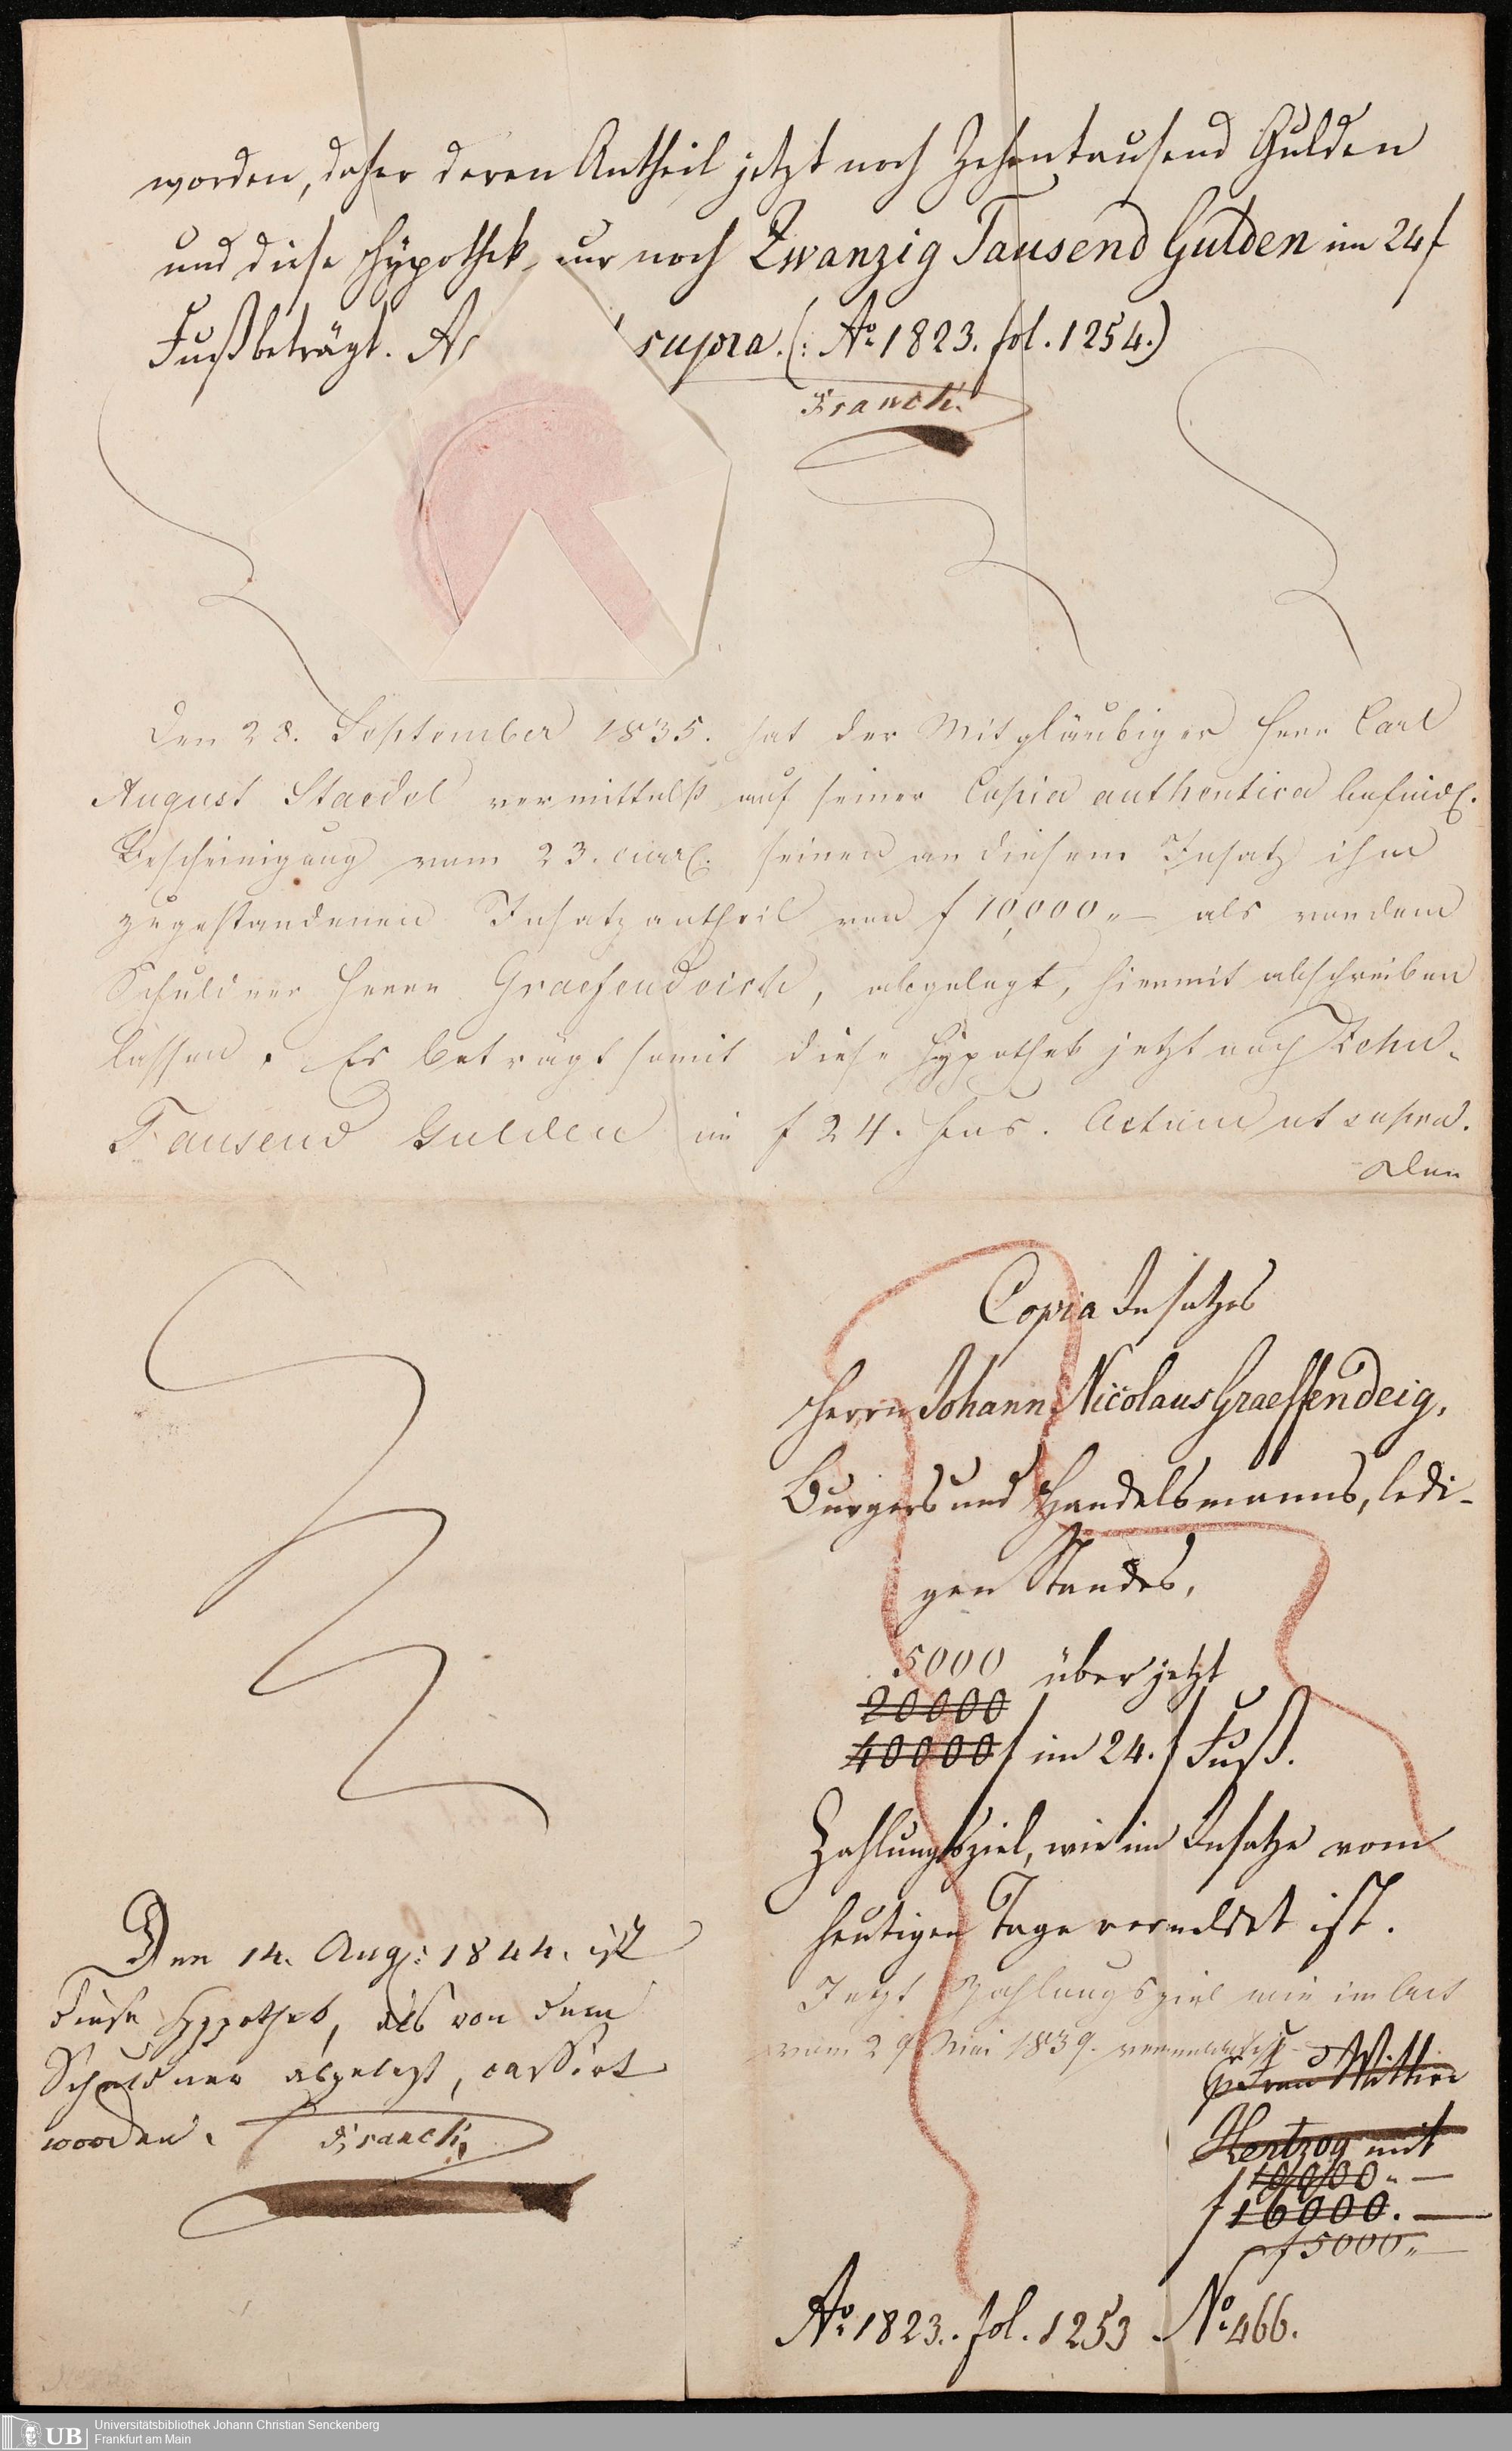 worden, daher deren Antheil jetzt noch Zehentausend Gulden
und diese Hypothek nur noch Zwanzig Tausend Gulden im 24 f
Fuß beträgt. A supra. (: Ao. 1823. fol. 1254.)
Franck.
Den 28. September 1835. hat der Mitgläubiger Herr Carl
August Staedel vermittelst auf seiner Copia authentica befindl.
Bescheinigung vom 23. curr. seinen an diesem Insatz ihm
zugestandenen Insatzantheil von f 10,000.,— als von dem
Schuldner Herrn Graefendeich, abgelegt, hiermit abschreiben
lassen. Es beträgt somit diese Hypothek jetzt noch Zehn-
Tausend Gulden im f 24. Fus. Actum ut supra.
Den
Copia Insatzes
Herrn Johann Nicolaus Graeffendeig,
Burgers und Handelsmanns, ledi-
gen Standes,
5000 über jetzt
20000
40000 f im 24. f Fuß.
Zahlungsziel, wie im Insatze vom
heutigen Tage vermeldet ist.
Jetzt Zahlungsziel wie im Act
vom 29 Mai 1839. vermeldet ist
Frau Wittwe
Hertzog mit
f 10000.,—
f 16000.—
f 5000.,—
Ao. 1823. fol. 1253 No. 466.
Den 14. Aug: 1844. ist
diese Hypothek, als von dem
Schuldner abgelegt, cassirt
worden.
Franck,
Universitätsbibliothek Johann Christian Senckenberg
Frankfurt am Main
UB